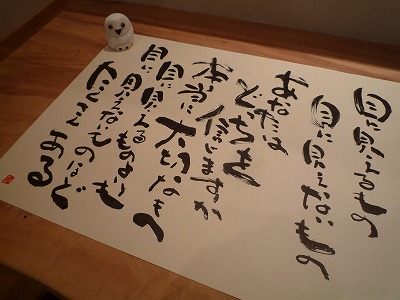 目に見えるもの
目に見えないもの
あなたは
どちらを
信じますか
本当に大切なもの
目に見えるものよりも
目に見えないものほど
たくさんある